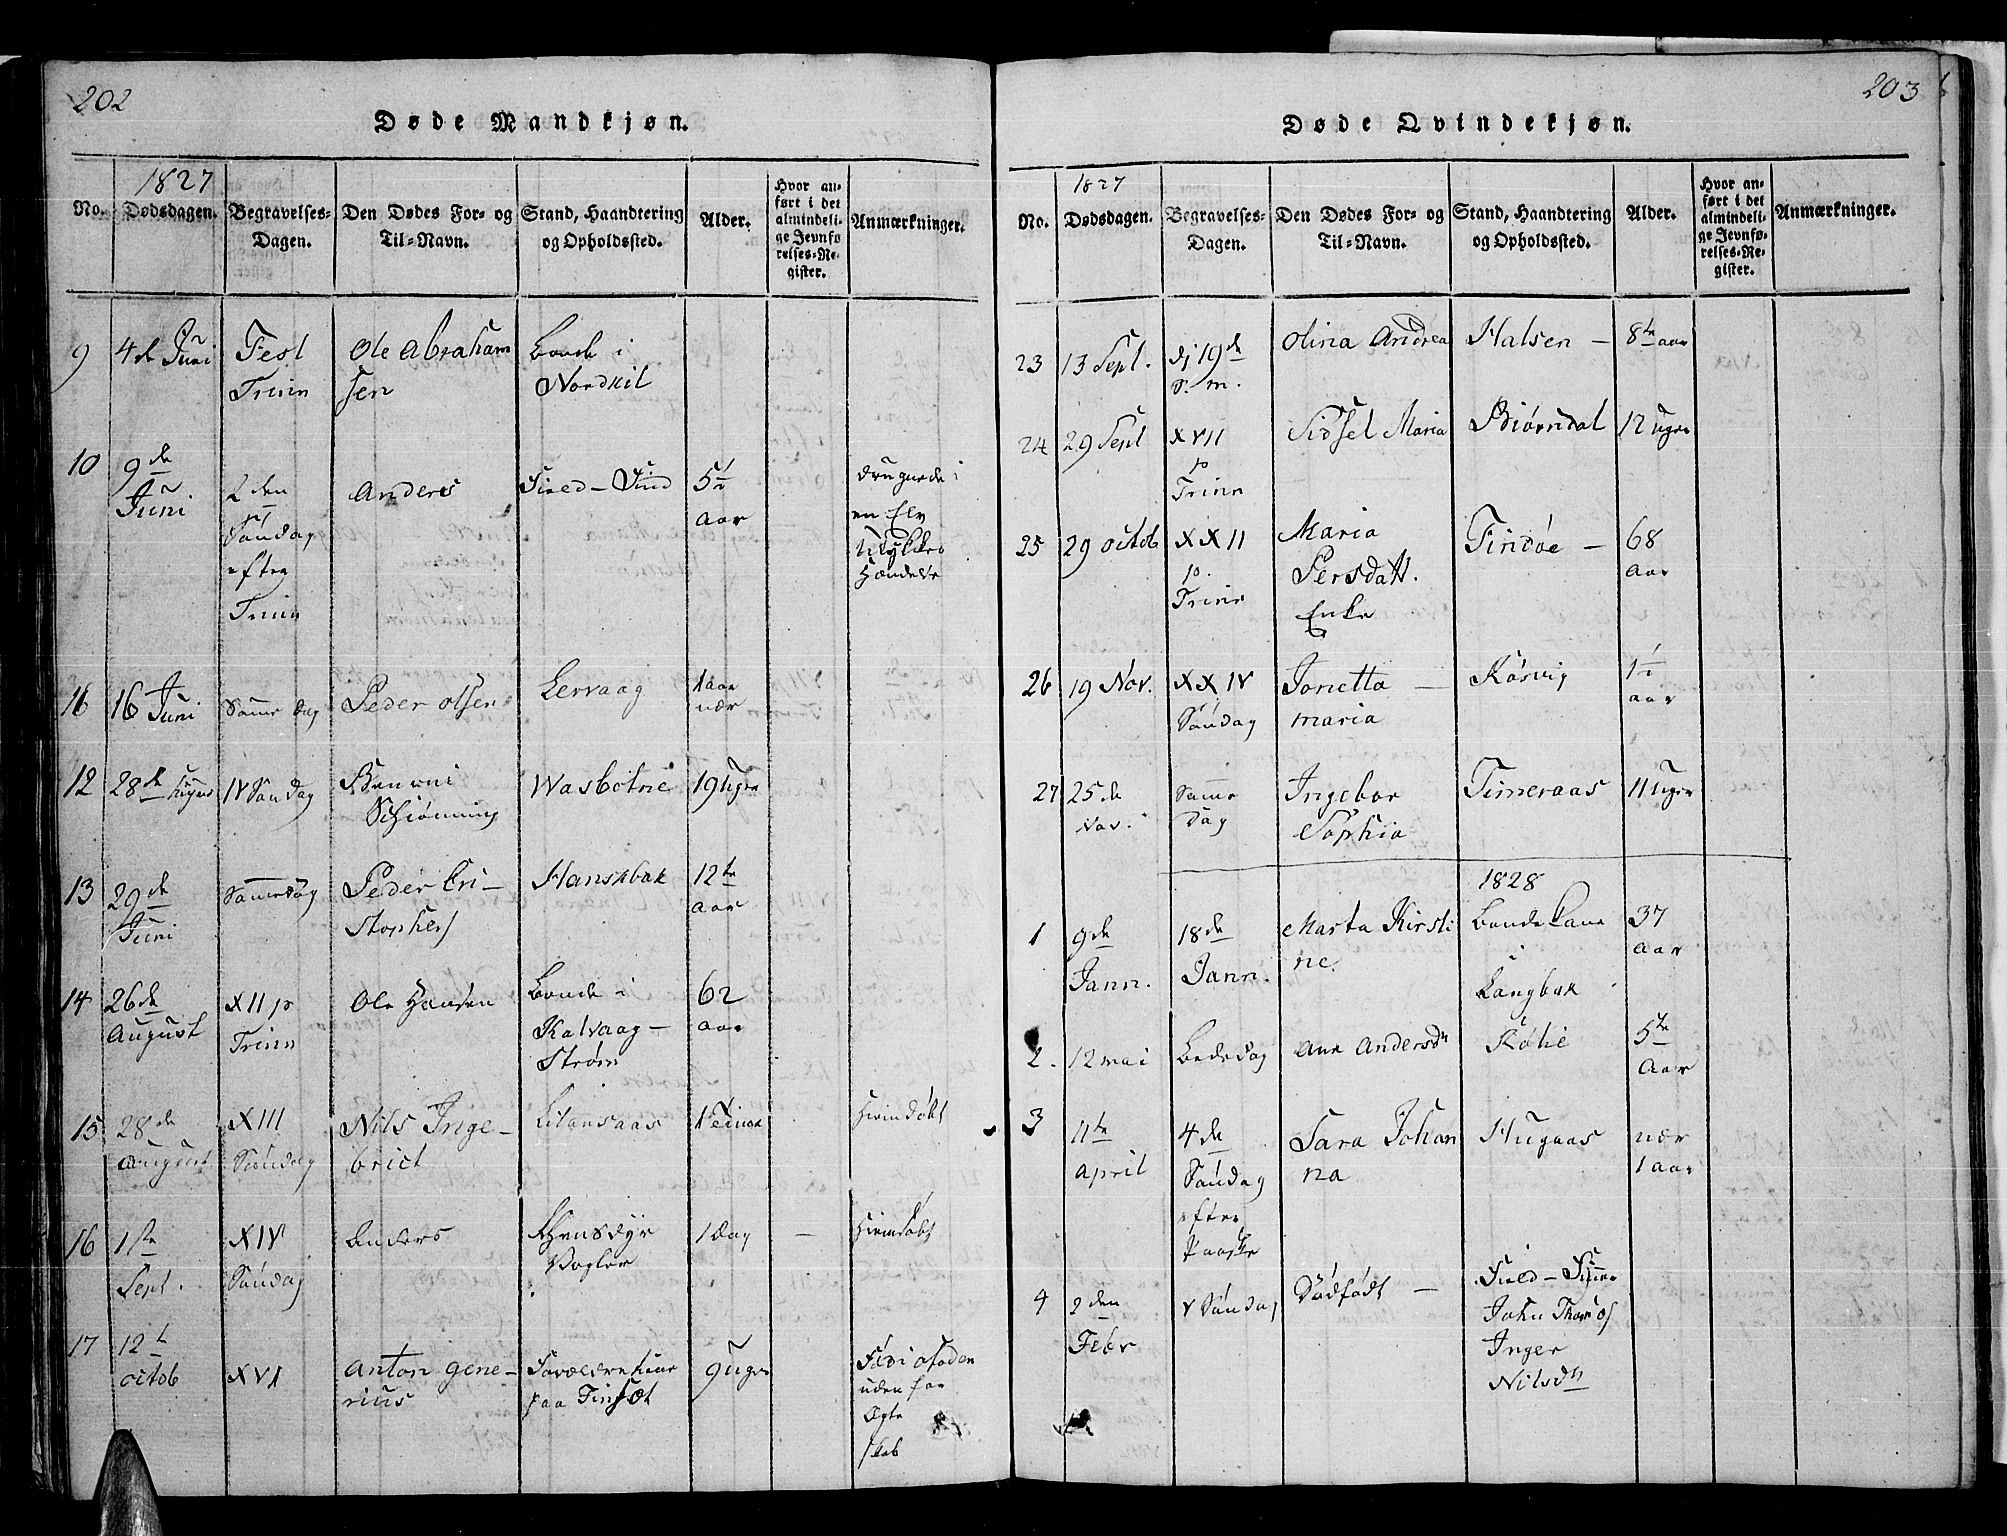 202
Døde Mandkjøn.
1827
No.
Dødsdagen.
Begravelses-
Dagen.
Den Dødes For- og
Til-Navn.
Stand, Haandtering
og Opholdssted.
Alder.
Hvor an-
ført i det
almindeli-
ge Jevnfø-
relses-Re-
gister.
Anmærkninger.
9
4de Juni
Fest
Trinn
Ole Abraham
sen
Bonde i
Nordkil
10
9de
Juni
2den
Søndag
efter
Trinn
Anders
5½
aar
en Elv
16
16 Juni
Samme dag
Peder Olsen
Lervaag
1 aar
nær
12
28de
IV Søndag
Schiønning
Wasbotne
19 Uger
13
29de
Juni
Samme dag
Peder Cri-
stophers
Hanskbak
12te
aar
14
26de
August
XII p
Trinn
Ole Hansen
Bonde i
Kalvaag-
Strøm
62
aar
15
28de
August
XIII
Søndag
Nils Inge-
brict
Hiemdøbt
16
1ste
Sept.
XIV
Søndag
Anders
1 dag
-
Hiemdøbt
17
12te
octob
XVI
Anton gene-
rius
paa Finsæt
9 Uger
uden for
Ægte
skab
203
Døde Qvindekjøn.
1827
No.
Dødsdagen.
Begravelses-
Dagen.
Den Dødes For- og
Til-Navn.
Stand, Haandtering
og Opholdssted.
Alder.
Hvor an-
ført i det
almindeli-
ge Jevnfø-
relses-Re-
gister.
Anmærkninger.
23
13 Sept.
dj 19de
s. m.
Olina Andrea
Halsen -
8te aar
24
29 Sept
XVII
p
Trinn
Sidsel Maria
Biørndal
12 Uger
25
29 octob
XXII
p.
Trinn
Maria
Persdatt.
Enke
Findøe -
68
aar
26
19 Nov.
XXIV
Søndag
Jonetta -
maria
Kösvig
1½
aar
27
25de
Nov.
Samme
dag
Ingebor
Sophia
Timeraas
11 Uger
1828
1
9de
Jann.
18de
Jann.
Marta Kirsti
ne.
Bondekone
i
Langbak
37
aar
2.
12 mai
Bededag
Ane Andersdn
Kølie
5te
Aar
3
11te
april
4de
Søndag
efter
Paaske
Sara Johan
na
Hugaas
nær
1 aar
4
2den
Febr
V Søndag
Dödfödt -
John Thom
Inger
Nilsdn